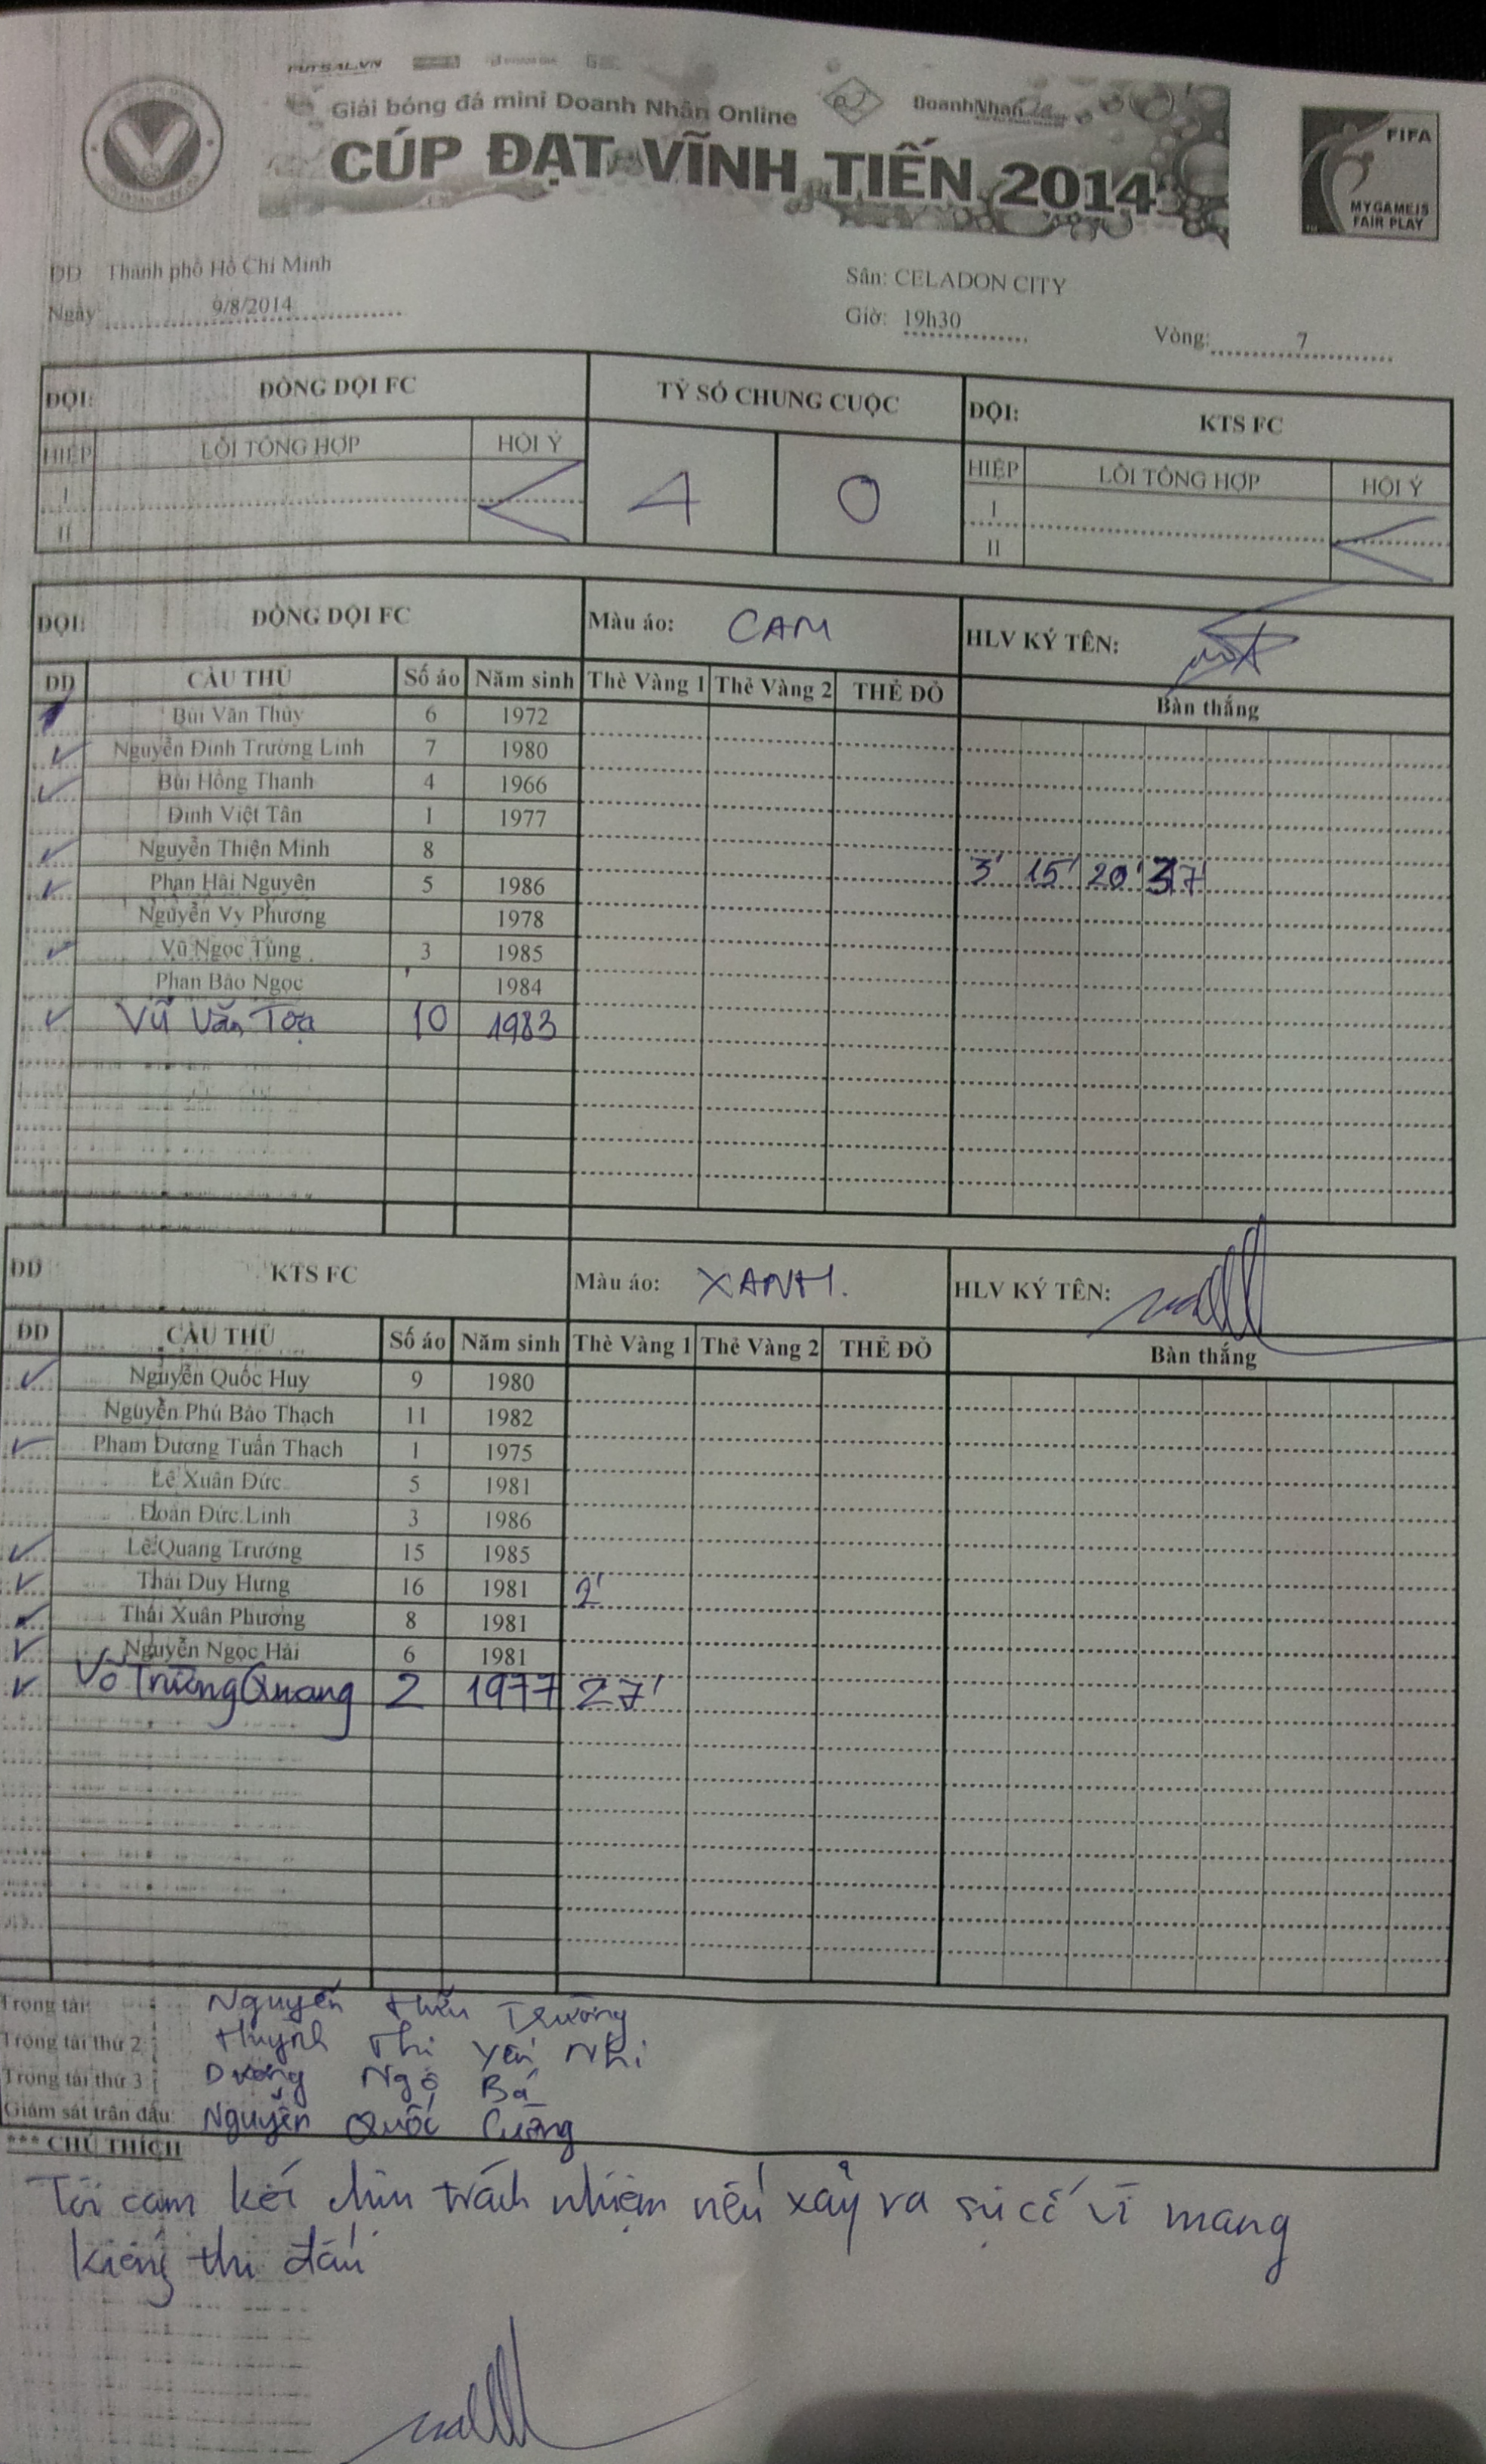 FUTSAL.VN
Giải bóng đá mini Doanh Nhân Online
DoanhNhan
CÚP ĐẠT VĨNH TIẾN 2014
FIFA
MY GAME IS
FAIR PLAY
DD Thành phố Hồ Chí Minh
Sân: CELADON CITY
Ngày 9/8/2014
Giờ: 19h30
Vòng: 7
ĐỘI: ĐỒNG ĐỘI FC TỶ SỐ CHUNG CUỘC ĐỘI: KTS FC
HIỆP LỖI TỔNG HỢP HỘI Ý 4 0 HIỆP LỖI TỔNG HỢP HỘI Ý
I I
II II
ĐỘI: ĐỒNG ĐỘI FC Màu áo: CAM HLV KÝ TÊN:
DD CẦU THỦ Số áo Năm sinh Thẻ Vàng 1 Thẻ Vàng 2 THẺ ĐỎ Bàn thắng
Bùi Văn Thủy 6 1972
Nguyễn Đình Trường Linh 7 1980
Bùi Hồng Thanh 4 1966
Đinh Việt Tân 1 1977
Nguyễn Thiện Minh 8
Phan Hải Nguyên 5 1986 3' 15' 20' 37'
Nguyễn Vy Phương 1978
Vũ Ngọc Tùng 3 1985
Phan Bảo Ngọc 1984
Vũ Văn Toạ 10 1983
DD KTS FC Màu áo: XANH. HLV KÝ TÊN:
DD CẦU THỦ Số áo Năm sinh Thẻ Vàng 1 Thẻ Vàng 2 THẺ ĐỎ Bàn thắng
Nguyễn Quốc Huy 9 1980
Nguyễn Phú Bảo Thạch 11 1982
Phạm Dương Tuấn Thạch 1 1975
Lê Xuân Đức 5 1981
Đoàn Đức Linh 3 1986
Lê Quang Trướng 15 1985
Thái Duy Hưng 16 1981 2'
Thái Xuân Phương 8 1981
Nguyễn Ngọc Hải 6 1981
Võ Trường Quang 2 1977 27'
Trọng tài: Nguyễn Hữu Trường
Trọng tài thứ 2: Huỳnh Thị Yến Nhi
Trọng tài thứ 3: Dương Ngô Bá
Giám sát trận đấu: Nguyễn Quốc Cường
*** CHÚ THÍCH
Tôi cam kết chịu trách nhiệm nếu xảy ra sự cố vì mang
kiếng thi đấu